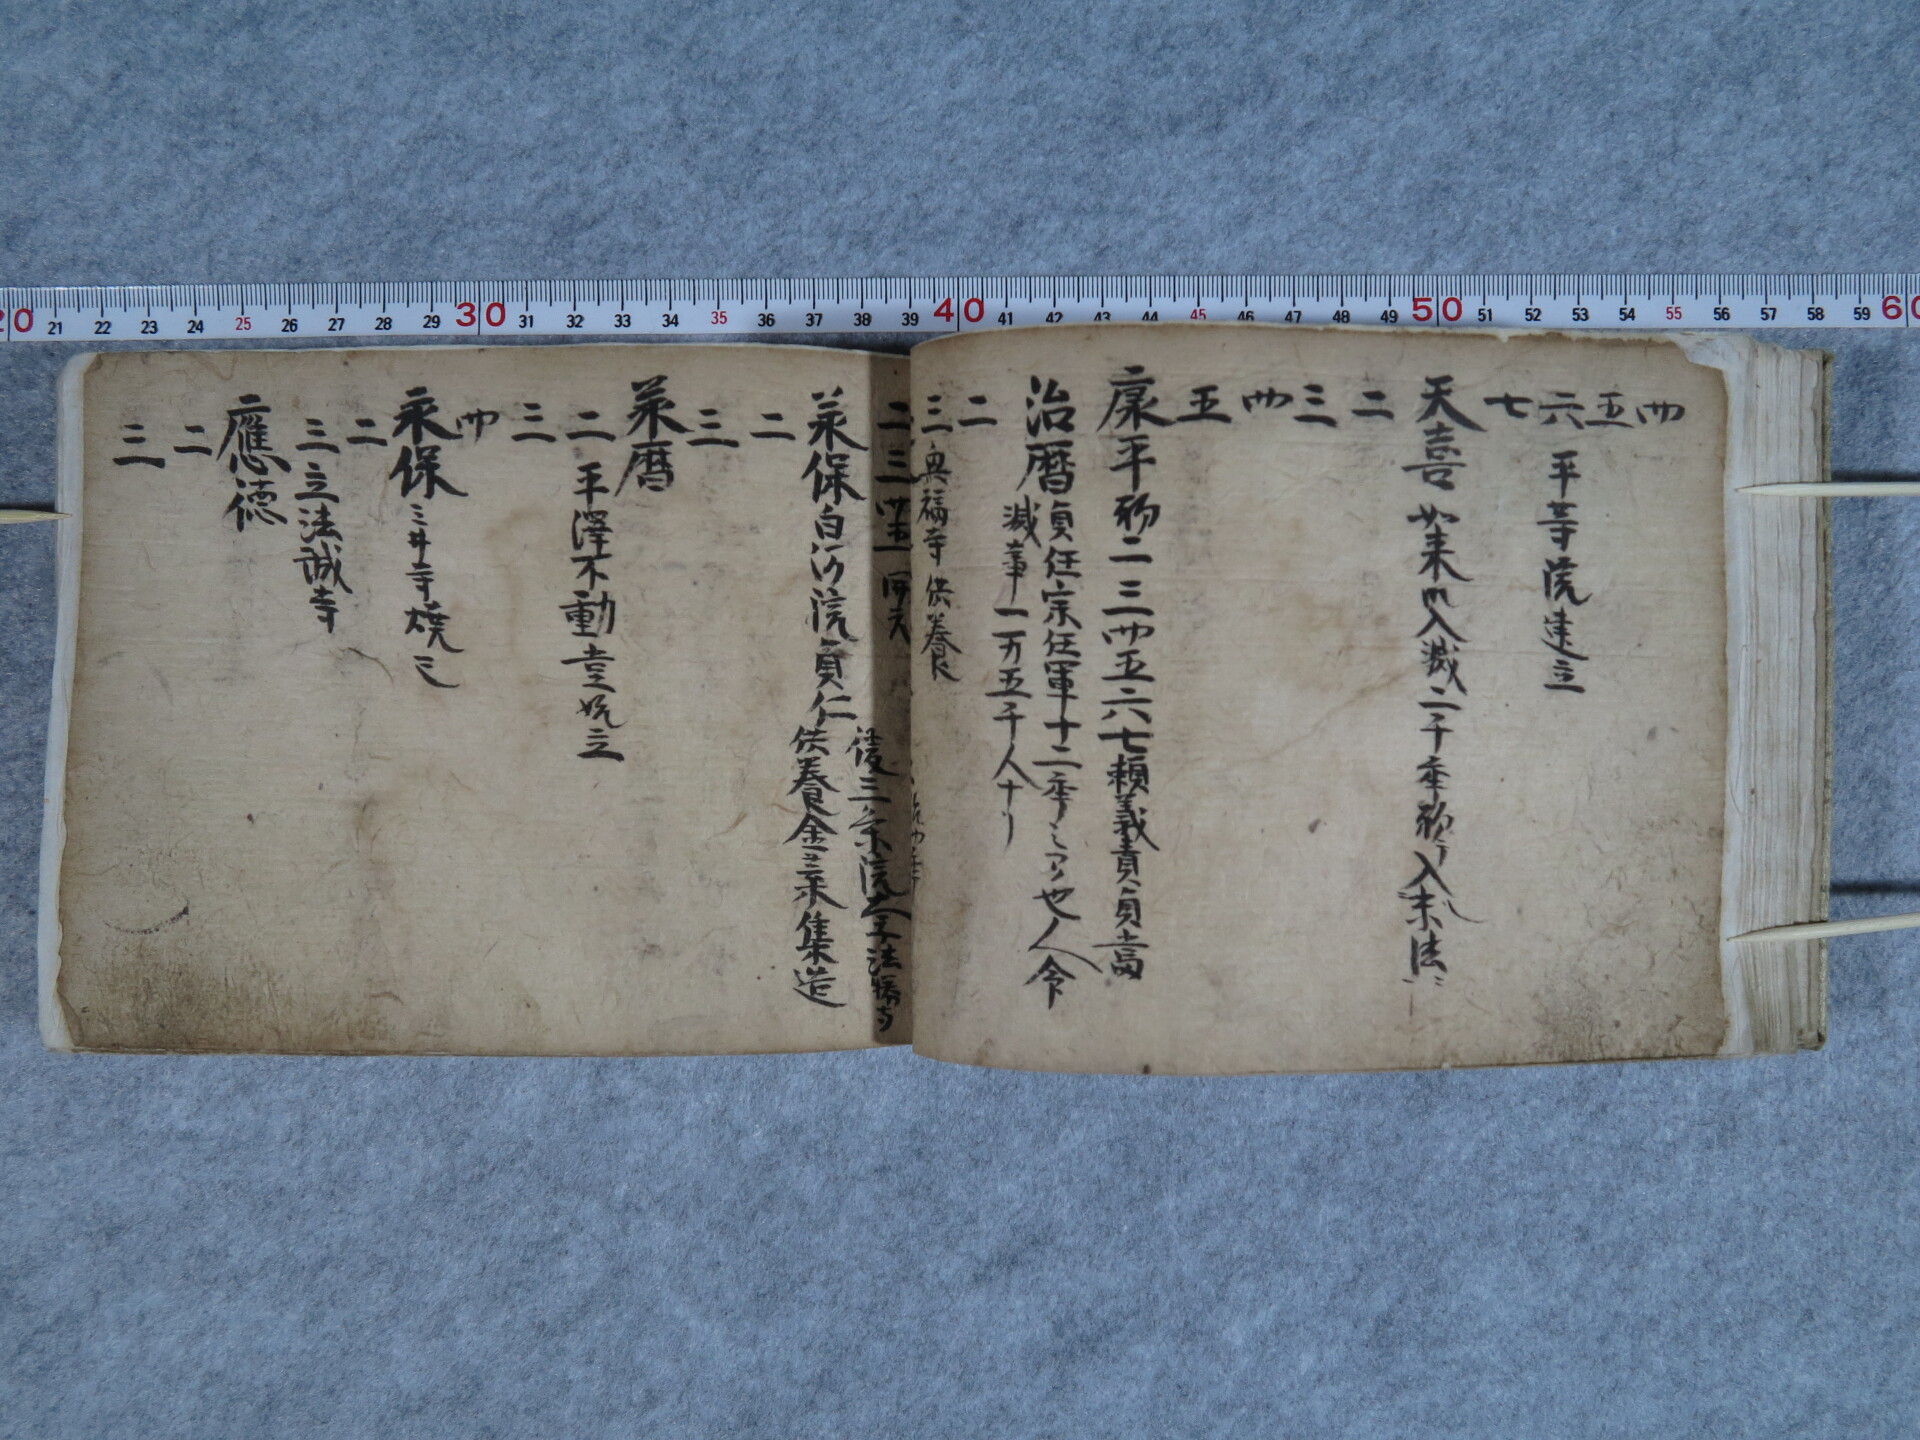 四
五
六 平等院建立
七
天喜 如来御入滅二千年初入末法
二
三
四
五
康平 初二三四五六七頼義責貞
治暦 貞任宗任軍十二年 也人今
滅事一万五千人
二
三 興福寺供養
二三四五
後三条院 法勝寺
承保 白河院貞仁 供養金 集造
二
三
承暦
二 平澤不動堂 立
三
四
永保 三井寺焼
二
三 立法誠寺
應徳
二
三
20 21 22 23 24 25 26 27 28 29 30 31 32 33 34 35 36 37 38 39 40 41 42 43 44 45 46 47 48 49 50 51 52 53 54 55 56 57 58 59 60